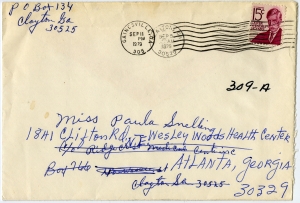 P O Box 134
Clayton, Ga
30525
GAINESVILLE, GA
SEP 18
PM
1979
305
15¢
309-A
Miss Paula Snelling
1841 Clifton Rd, N E Wesley Woods Health Center
c/o Ridgecrest
Box 766
ATLANTA, GEORGIA
Clayton Ga 30525
30329